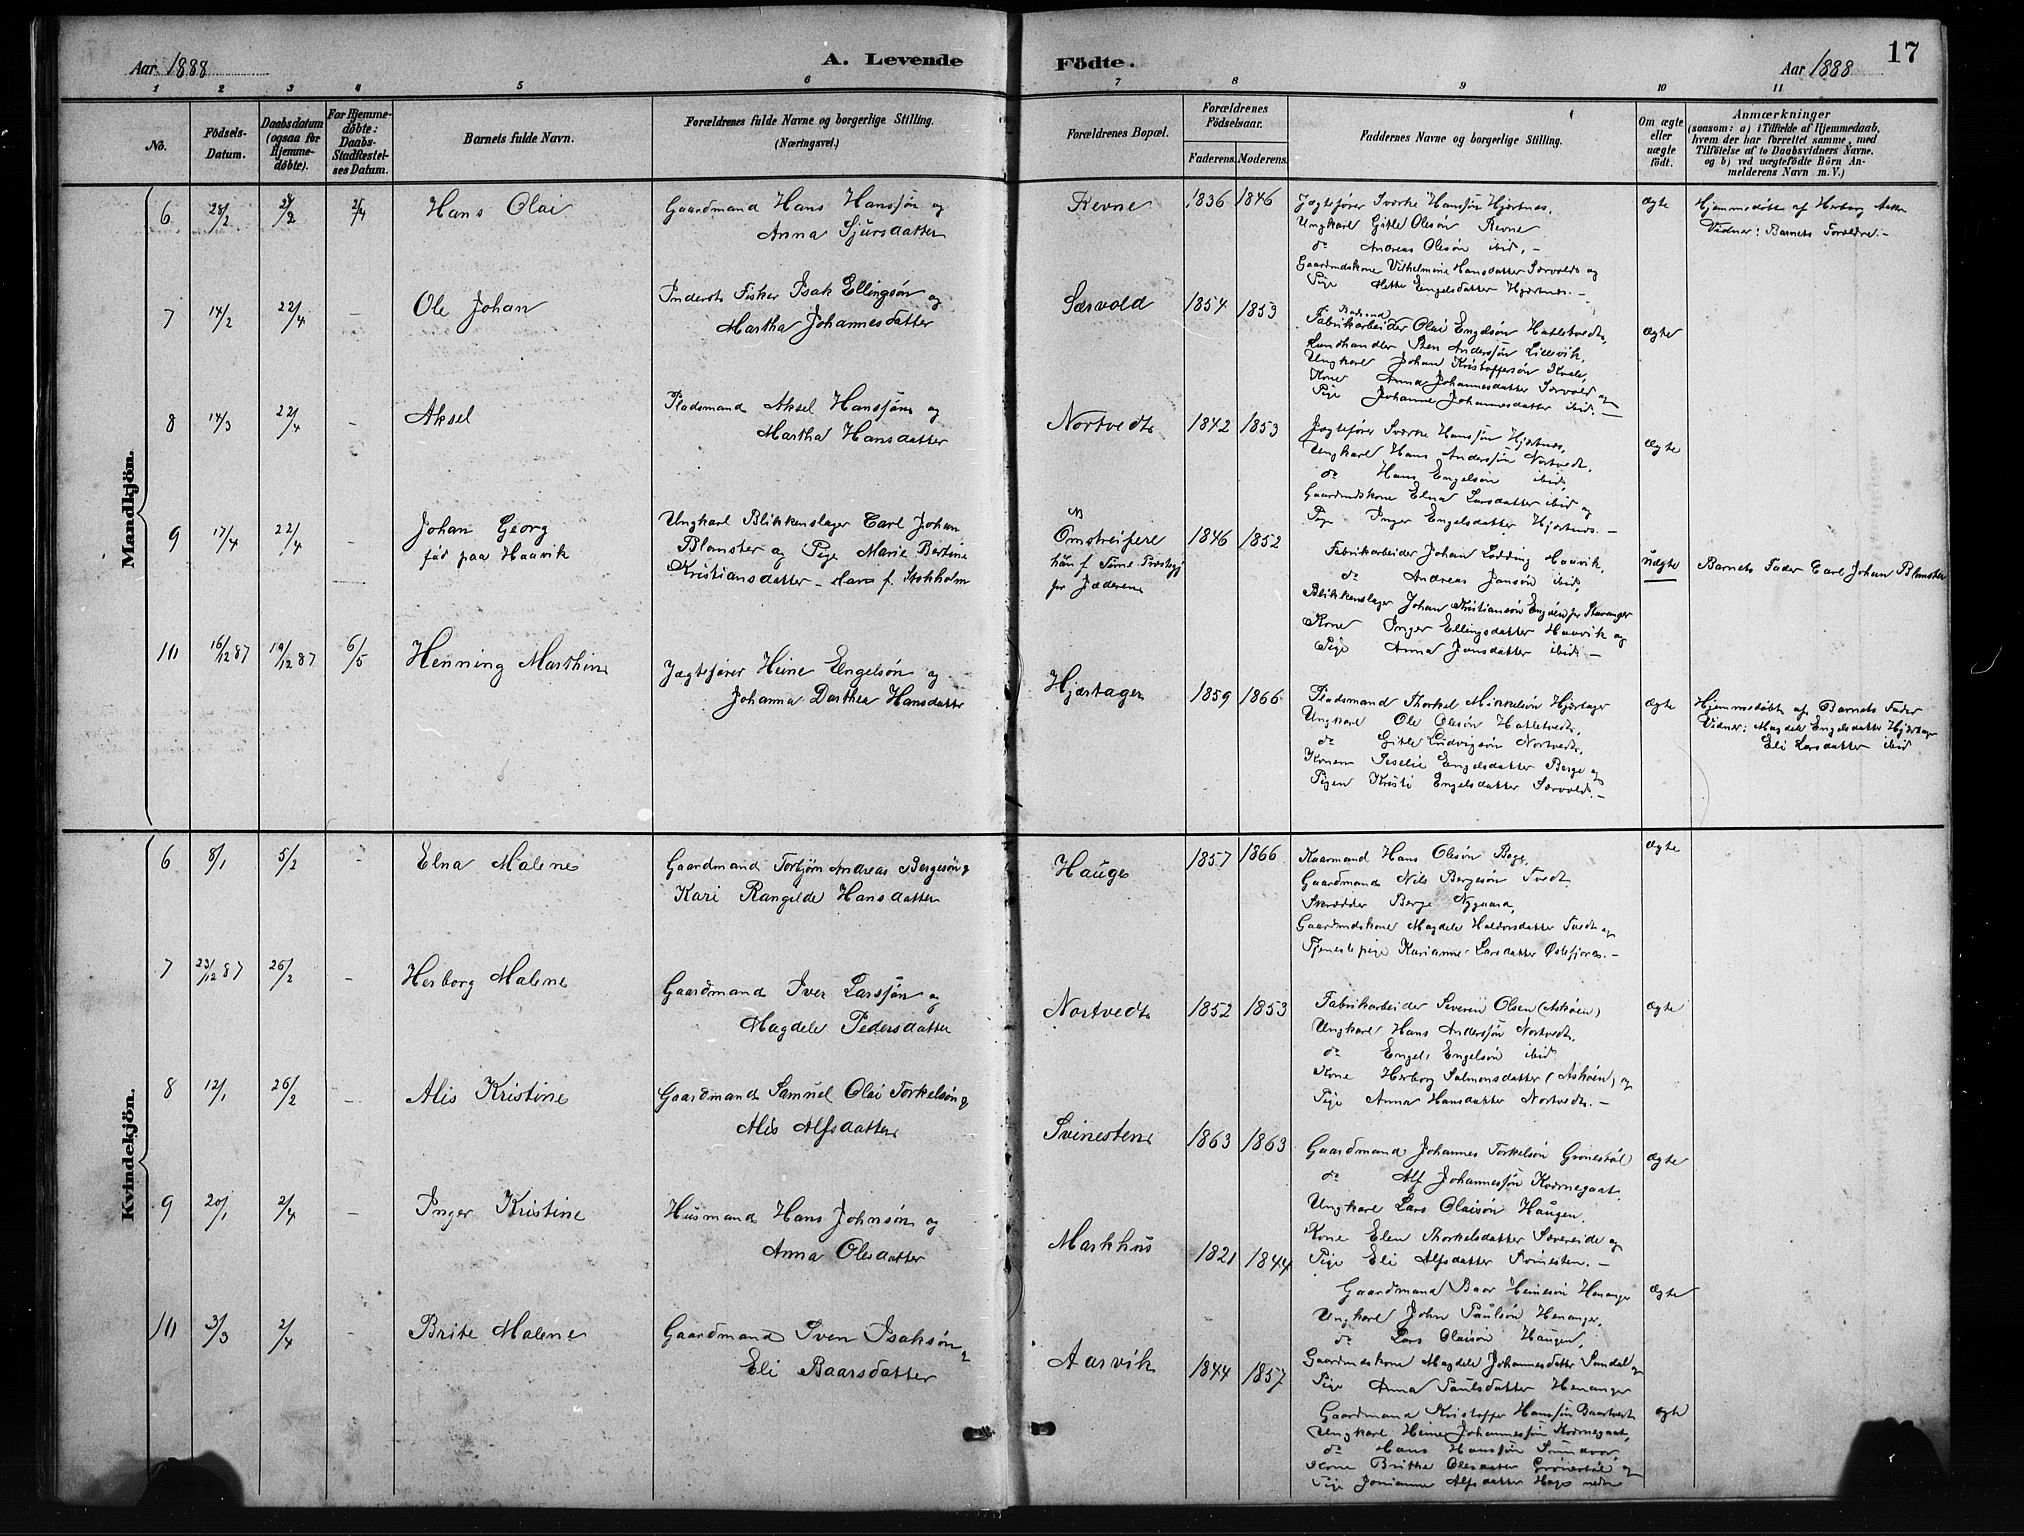 Aar 1888
A. Levende
Födte.
Aar 1888
17
1 2 3 4 5 6 7 8 9 10 11
No.
Födsels-
Datum.
Daabsdatum
(ogsaa for
Hjemme-
døbte).
For Hjemme-
døbte:
Daabs-
Stadfæstel-
ses Datum.
Barnets fulde Navn.
Forældrenes fulde Navne og borgerlige Stilling.
(Næringsvei.)
Forældrenes Bopæl.
Forældrenes
Födselsaar.
Faderens. Moderens.
Faddernes Navne og borgerlige Stilling.
Om ægte
eller
uægte
født.
Anmærkninger
(saasom: a) i Tilfælde af Hjemmedaab,
hvem der har forrettet samme, med
Tilföielse af to Daabsvidners Navne,
og b) ved uægtefödte Börn An-
melderens Navn m. V.)
Mandkjön.
6 28/2 2/4 Hans Olai
Gaardmand Hans Hansson og
Anna Sjursdatter
Revne 1836 1846
Jægtefører Sverke Hansson Hjertnes,
Ungkarl Gitle Olesön Revne
do Andreas Olesön ibid, -
Gaardmdskone Vilhelmine Hansdatter Særvold og
Pige Mette Engelsdatter Hjertnes. -
ægte
Hjemmedøbt af Herborg
Vidner: Barnets Forældre. -
7 14/2 22/4 - Ole Johan
Inderst Fisker Isak Ellingsön og
Martha Johannesdatter
Særvold 1854 1853
Fabrikarbeider Olai Engelsön Hatletvedt,
Landhandler Sten Anderssön Lillevik,
Ungkarl Johan Kristoffersön Kvale,
Kone Anna Johannesdatter Særvold og
Pige Johanne Johannesdatter ibid. -
ægte
8 14/3 22/4 - Aksel
Pladsmand Aksel Hanssön og
Martha Hansdatter
Nortvedt 1842 1853
Jægtefører Sverke Hanssön Hjertnes,
Ungkarl Hans Anderssön Nortvedt,
do Hans Engelsön ibid,
Gaardmdskone Elna Larsdatter ibid og
Pige Inger Engelsdatter Hjertnes. -
ægte
9 17/4 22/4 - Johan Georg
fød paa Haavik
Ungkarl Blikkenslager Carl Johan
Blomster og Pige Marie Bertine
Kristiansdatter - Han f. Stokholm
Omstreifere
hun f. Time Præstegj
paa Jæderen
1846 1852
Fabrikarbeider Johan Lodding Haavik,
do Andreas Jansön ibid,
Blikkenslager Johan Kristiansön Engöen pr Stavanger
Kone Inger Ellingsdatter Haavik og
Pige Anna Jansdatter ibid -
uægte
Barnets Fader Carl Johan Blomster
10 16/12 87 19/12 87 6/5 Henning Marthin
Jægtefører Heine Engelsön og
Johanna Dorthea Hansdatter
Hjertager 1859 1866
Pladsmand Thorkel Mikkelsön Hjertager
Ungkarl Ole Olesön Hatletvedt,
do Gitle Ludvigsön Nortvedt,
Konen Seselie Engelsdatter Berge og
Pigen Kristi Engelsdatter Særvold. -
ægte
Hjemmedøbt af Barnets Fader
Vidner: Magdele Engelsdatter Hjertager
Eli Larsdatter ibid
Kvindekjön.
6 8/1 5/2 - Elna Malene
Gaardmand Torbjörn Andreas Bergesön og
Kari Rangilde Hansdatter
Hauge 1857 1866
Kaarmand Hans Olesön Berge,
Gaardmand Nils Bergesön Tvedt,
Skrædder Berge Nygaard,
Gaardmdskone Magdele Haldorsdatter Tvedt og
Tjenestepige Karianne Larsdatter Østefjoren. -
ægte
7 23/12 87 26/2 - Herborg Malene
Gaardmand Iver Larssön og
Magdele Pedersdatter
Nortvedt 1852 1853
Fabrikarbeider Severin Olsen (Askøen)
Ungkarl Hans Anderssön Nortvedt,
do Engel Engelsön ibid.
Kone Herborg Salmonsdatter (Askøen) og
Pige Anna Hansdatter Nortvedt. -
ægte
8 12/1 26/2 - Alis Kristine
Gaardmand Samuel Olai Torkelsön og
Alis Alfsdatter
Svinesten 1863 1863
Gaardmand Johannes Torkelsön Grønestöl
do Alf Johannessön Kornegaat,
Ungkarl Lars Olaisön Haugen,
Kone Elen Thorkelsdatter Sævereide og
Pige Eli Alfsdatter Svinesten. -
ægte
9 20/1 2/4 - Inger Kristine
Husmand Hans Johnsön og
Anna Olesdatter
Markhus 1821 1844
Gaardmand Baar Heinesön Henanger
Ungkarl John Paulsön Henanger,
do Lars Olaisön Haugen,
Gaardmdskone Magdele Johannesdatter Sundal og
Pige Anna Paulsdatter Henanger
ægte
10 3/3 2/4 - Brite Malene
Gaardmand Sven Isaksön og
Eli Baarsdatter
Aarvik 1844 1857
Gaardmand Kristoffer Hanssön Baartvedt
Ungkarl Heine Johannessön Kornegaat,
do Hans Hanssön Sundvor
Kone Brithe Olesdatter Grönestöl og
Pige Johanne Alfsdatter nedre
ægte